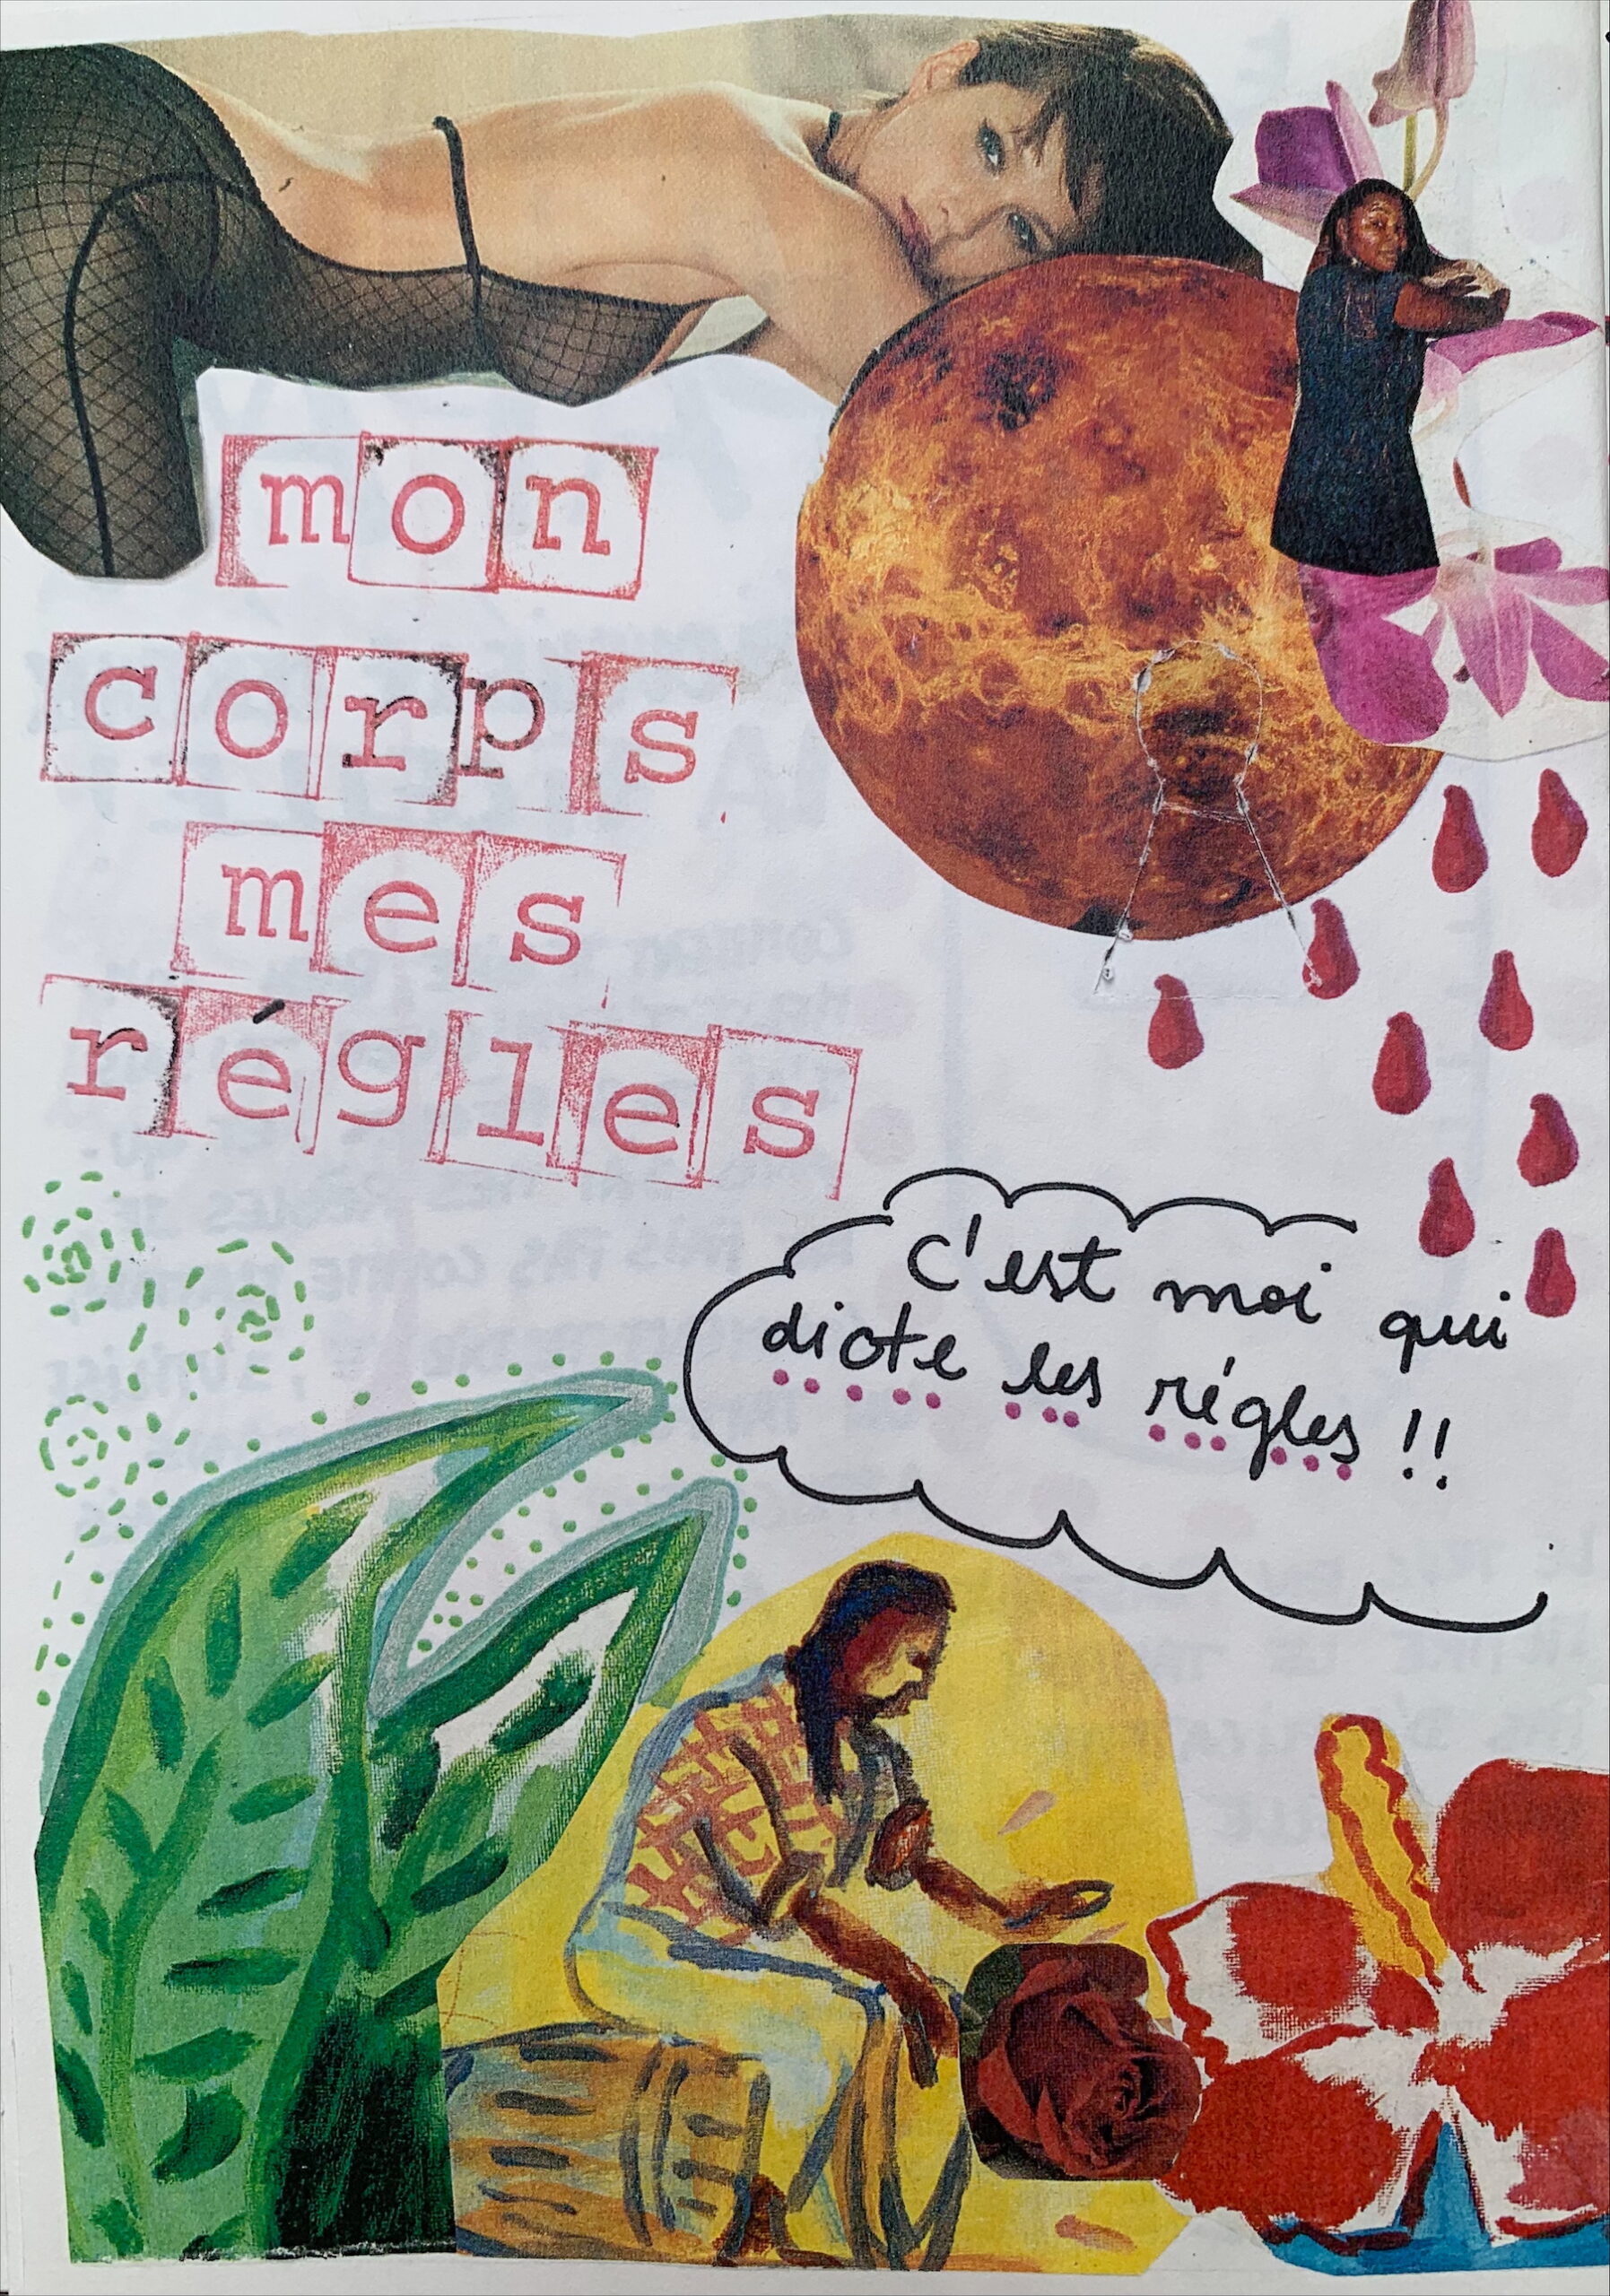 mon
corps
mes
régles
c'est moi qui
dicte les régles !!